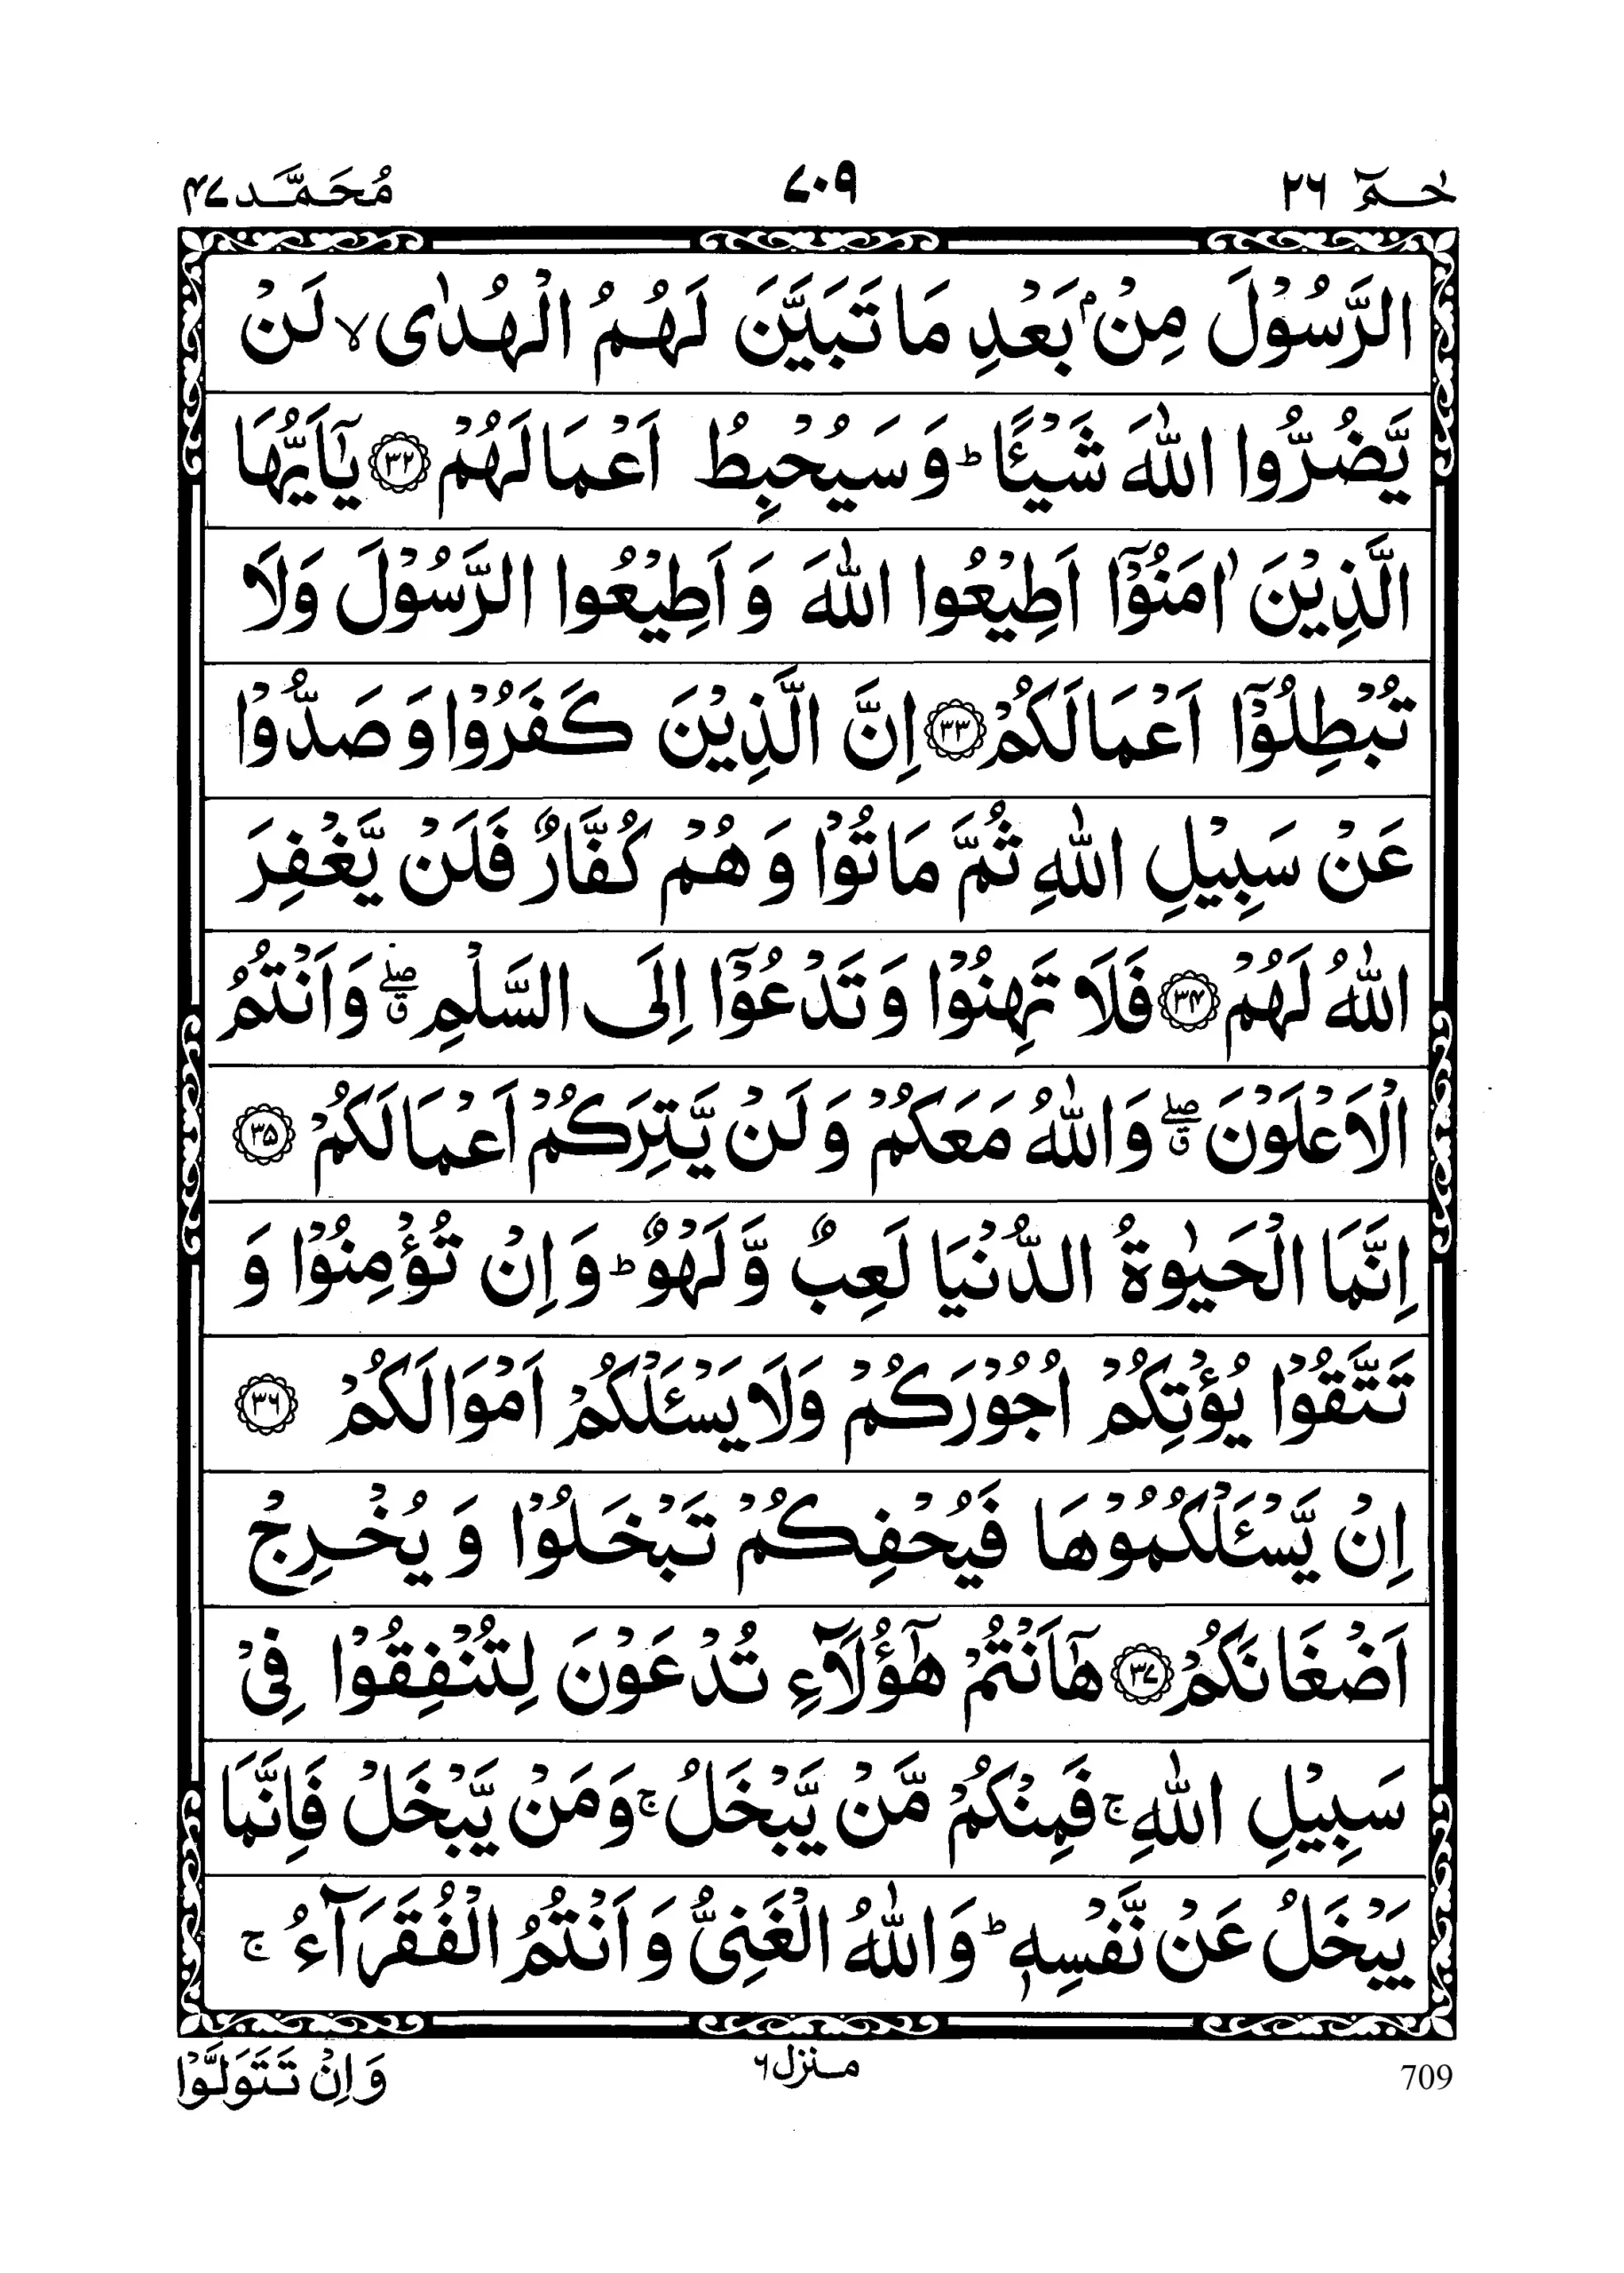 حٰـمٓ ٢٦
٧٠٩
مُحَمَّد ٤٧
الرَّسُوْلَ مِنْۢ بَعْدِ مَا تَبَيَّنَ لَهُمُ الْهُدٰى ۙ لَنْ
يَّضُرُّوا اللّٰهَ شَيْـًٔا ؕ وَ سَيُحْبِطُ اَعْمَالَهُمْ ﴿٣٢﴾ يٰۤاَيُّهَا
الَّذِيْنَ اٰمَنُوْۤا اَطِيْعُوا اللّٰهَ وَ اَطِيْعُوا الرَّسُوْلَ وَلَا
تُبْطِلُوْۤا اَعْمَالَكُمْ ﴿٣٣﴾ اِنَّ الَّذِيْنَ كَفَرُوْا وَ صَدُّوْا
عَنْ سَبِيْلِ اللّٰهِ ثُمَّ مَاتُوْا وَ هُمْ كُفَّارٌ فَلَنْ يَّغْفِرَ
اللّٰهُ لَهُمْ ﴿٣٤﴾ فَلَا تَهِنُوْا وَ تَدْعُوْۤا اِلَى السَّلْمِ ۖۗ وَ اَنْتُمُ
الْاَعْلَوْنَ ۖۗ وَ اللّٰهُ مَعَكُمْ وَ لَنْ يَّتِرَكُمْ اَعْمَالَكُمْ ﴿٣٥﴾
اِنَّمَا الْحَيٰوةُ الدُّنْيَا لَعِبٌ وَّ لَهْوٌ ؕ وَ اِنْ تُؤْمِنُوْا وَ
تَتَّقُوْا يُؤْتِكُمْ اُجُوْرَكُمْ وَلَا يَسْـَٔلْكُمْ اَمْوَالَكُمْ ﴿٣٦﴾
اِنْ يَّسْـَٔلْكُمُوْهَا فَيُحْفِكُمْ تَبْخَلُوْا وَ يُخْرِجْ
اَضْغَانَكُمْ ﴿٣٧﴾ هٰۤاَنْتُمْ هٰۤؤُلَآءِ تُدْعَوْنَ لِتُنْفِقُوْا فِيْ
سَبِيْلِ اللّٰهِ ۚ فَمِنْكُمْ مَّنْ يَّبْخَلُ ۚ وَمَنْ يَّبْخَلْ فَاِنَّمَا
يَبْخَلُ عَنْ نَّفْسِهٖ ؕ وَ اللّٰهُ الْغَنِيُّ وَ اَنْتُمُ الْفُقَرَآءُ ۚ
709
منزل ٦
وَ اِنْ تَتَوَلَّوْا